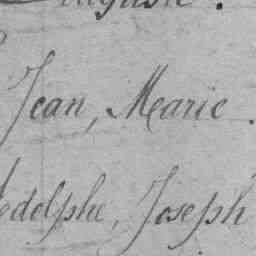 Jean, Marie.
Adolphe, Joseph